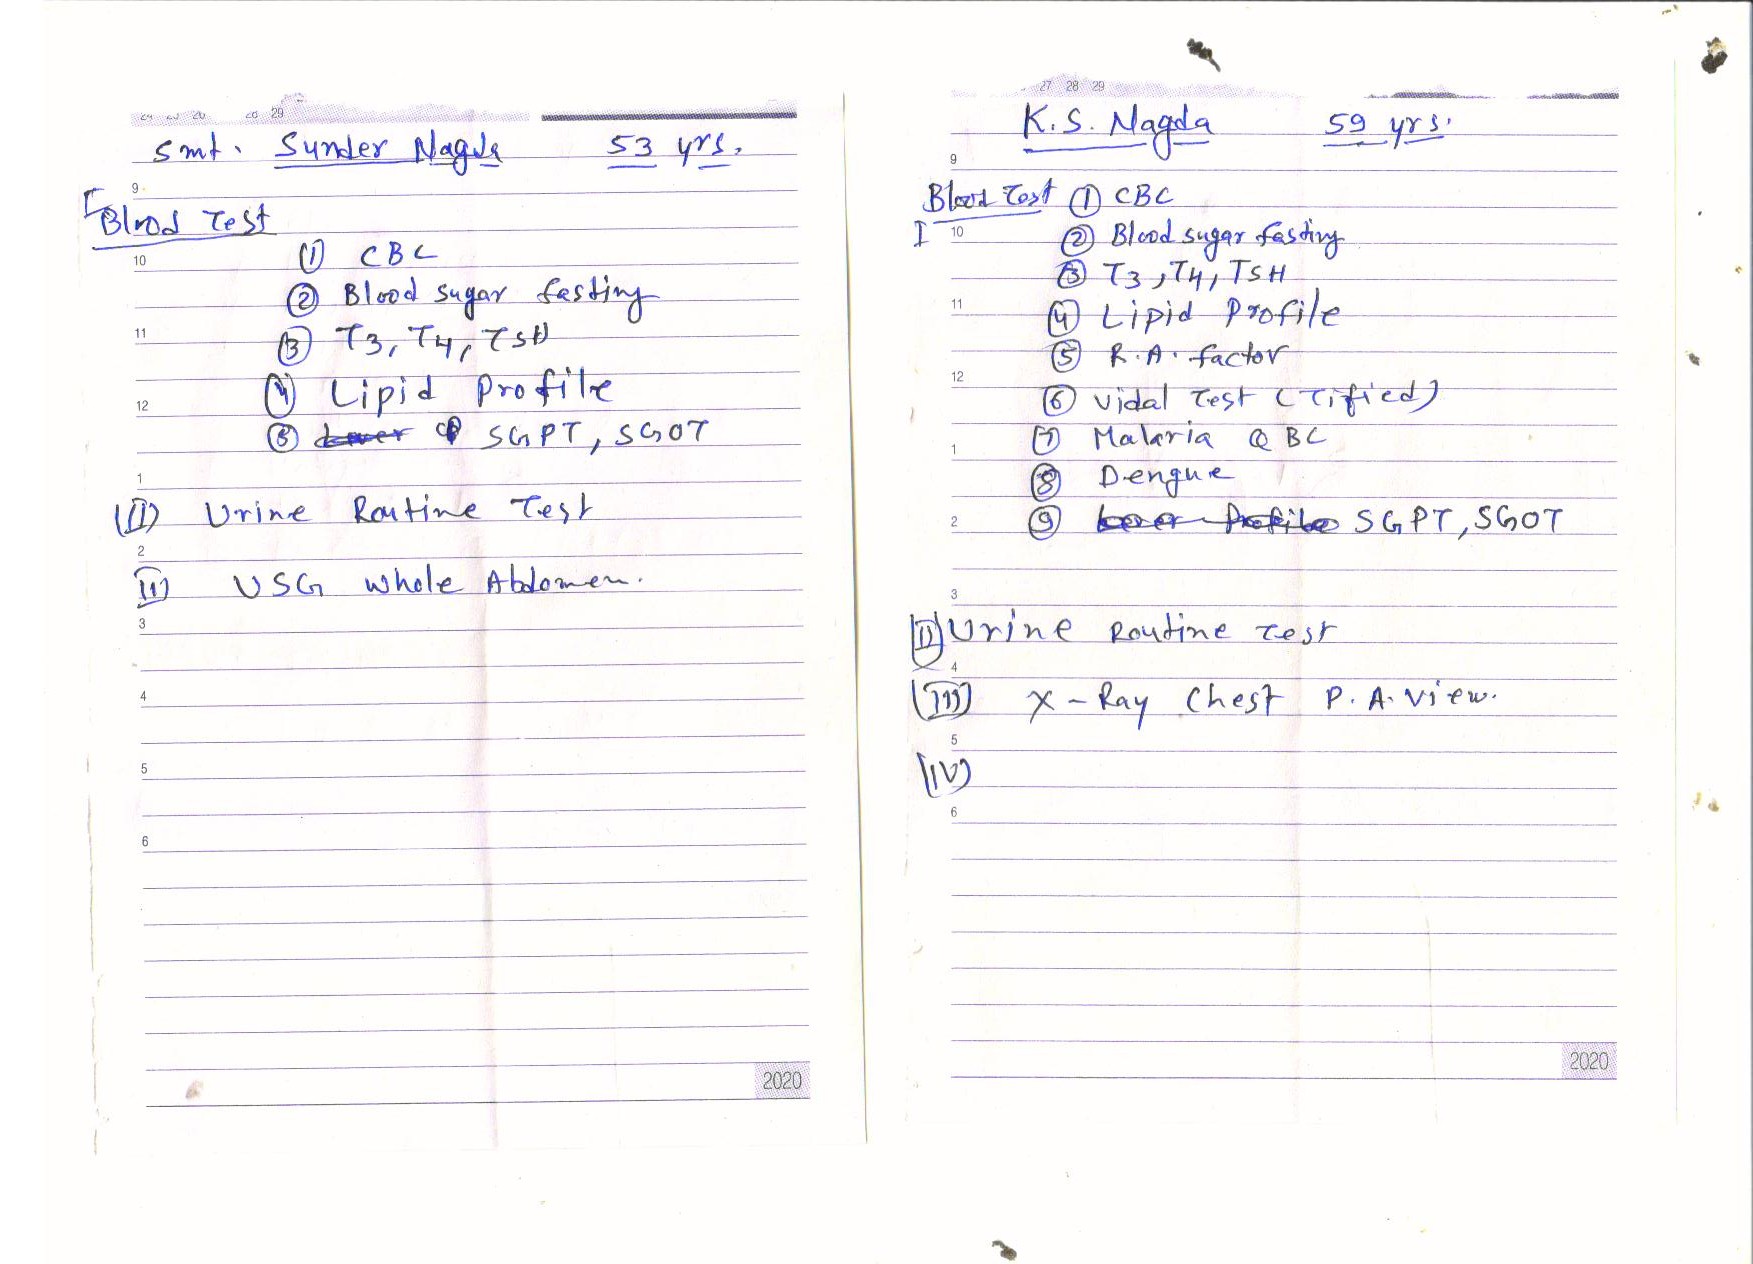 29
smt. Sunder Nagda 53 yrs.
9
I
Blood Test
(1) CBC
10
(2) Blood sugar fasting
11
(3) T3, T4, TSH
(4) Lipid Profile
12
(5) SGPT, SGOT
1
(II) Urine Routine Test
2
(III) USG Whole Abdomen.
3
4
5
6
2020
27 28 29
K.S. Nagda 59 yrs.
9
Blood Test (1) CBC
I 10 (2) Blood sugar fasting
(3) T3, T4, TSH
11
(4) Lipid Profile
(5) R.A. factor
12
(6) Vidal Test (Tified)
(7) Malaria QBC
1
(8) Dengue
2 (9) Lever Profile SGPT, SGOT
3
(II) Urine Routine Test
4
(III) X-Ray Chest P.A. View.
5
(IV)
6
2020